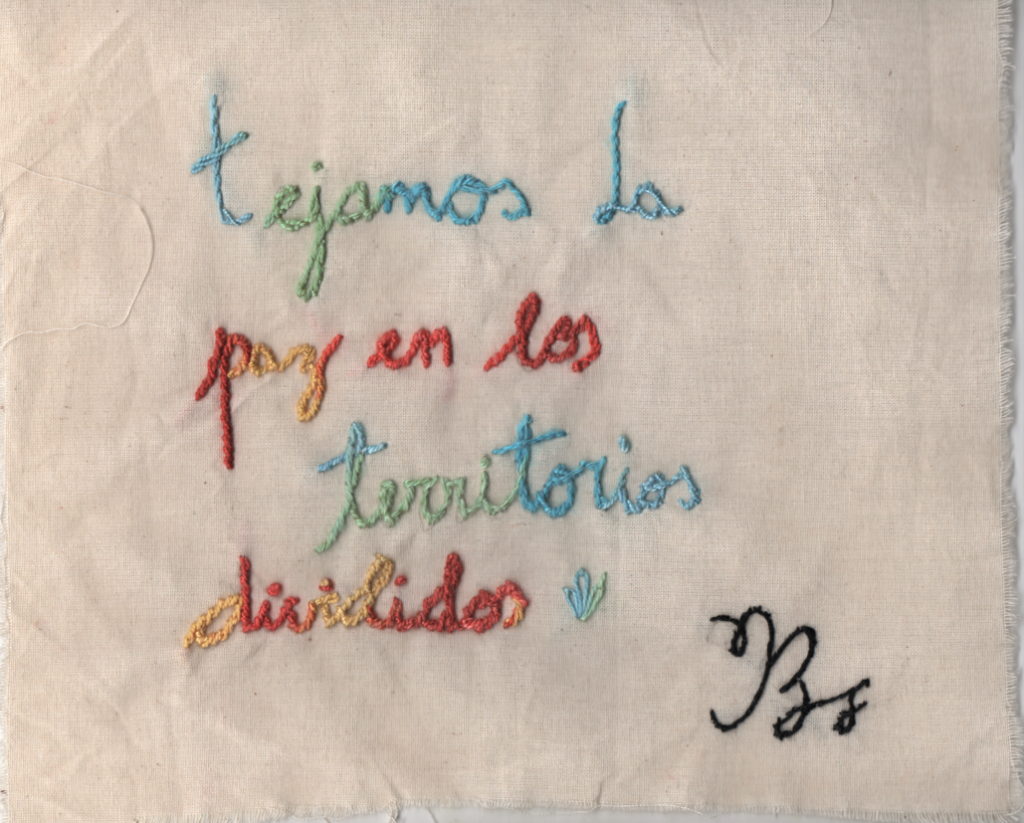 tejamos la
paz en los
territorios
divididos
Bs